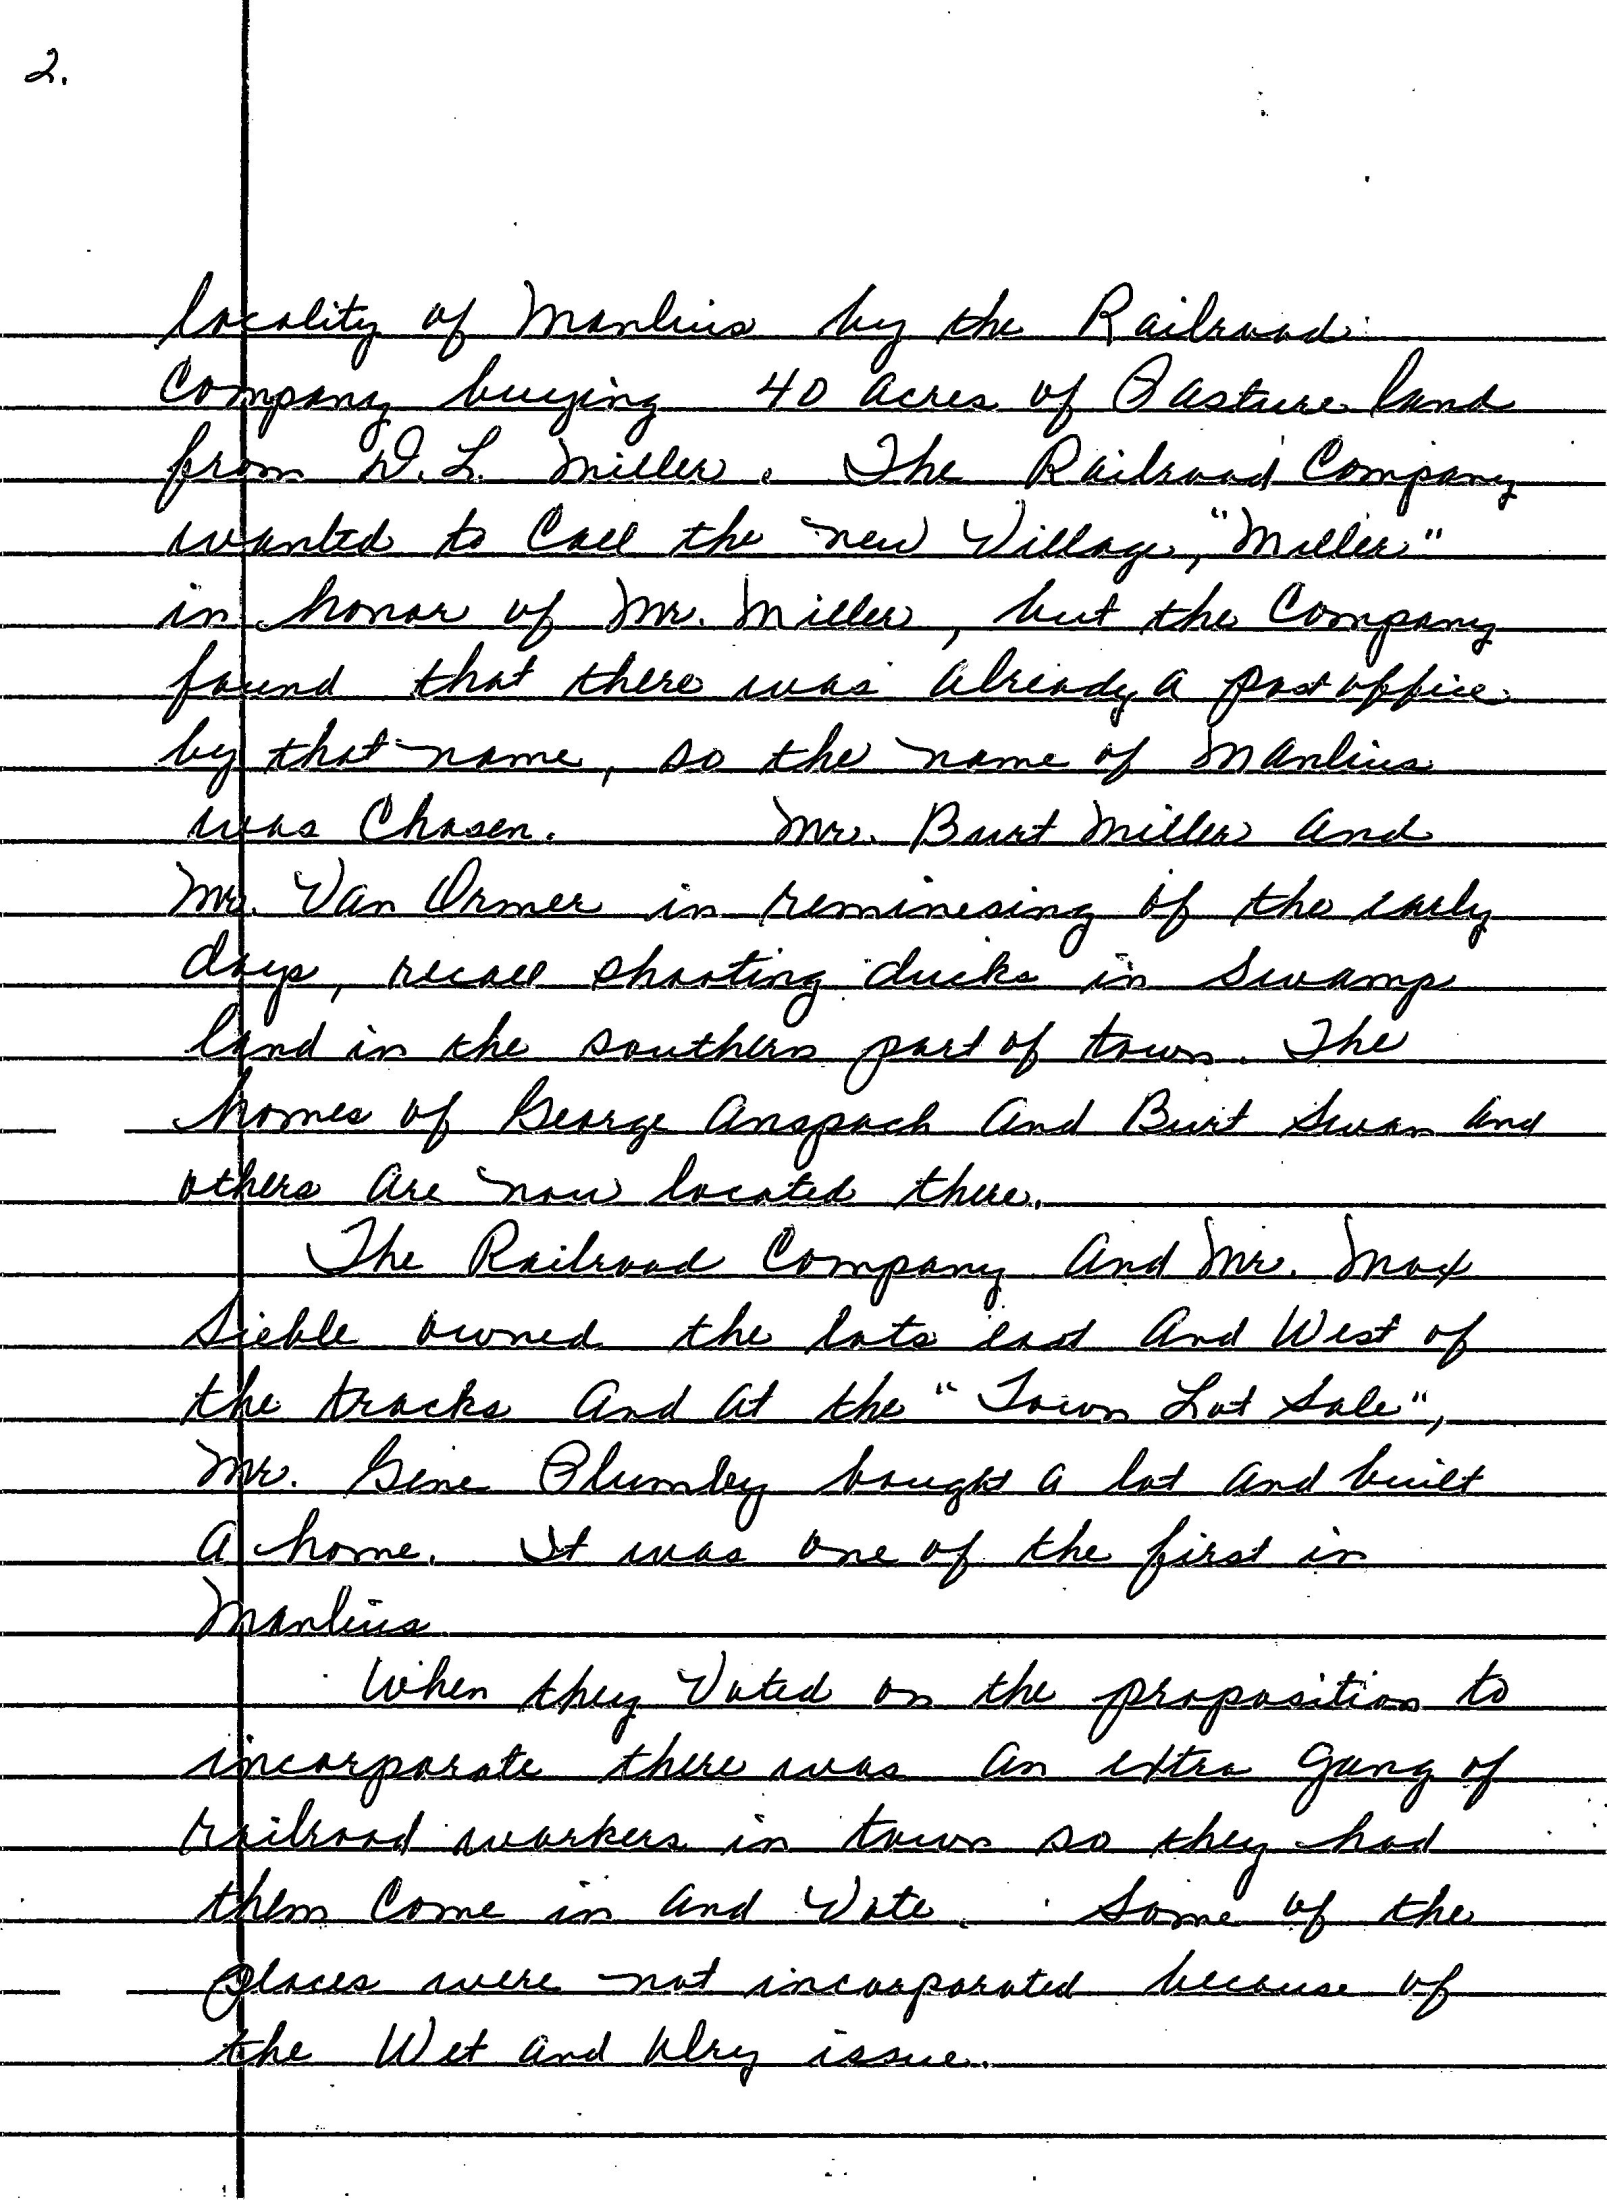 2.
locality of Manlius by the Railroad
Company buying 40 acres of Pasture land
from D. L. Miller. The Railroad Company
wanted to Call the new Village, "Miller"
in honor of Mr. Miller, but the Company
found that there was already a post office
by that name, so the name of Manlius
was Chosen. Mr. Burt Miller and
Mr. Van Ormer in reminesing of the early
days, recall shooting ducks in Swamp
land in the southern part of town. The
homes of George Anspach and Burt Swan and
others are now located there.
The Railroad Company and Mr. Max
Sieble owned the lots east and West of
the tracks and at the "Town Lot Sale",
Mr. Gene Plumley bought a lot and built
a home. It was one of the first in
Manlius
When they Voted on the proposition to
incorporate there was an extra gang of
railroad workers in town so they had
them Come in and Vote. Some of the
places were not incorporated because of
the Wet and Dry issue.